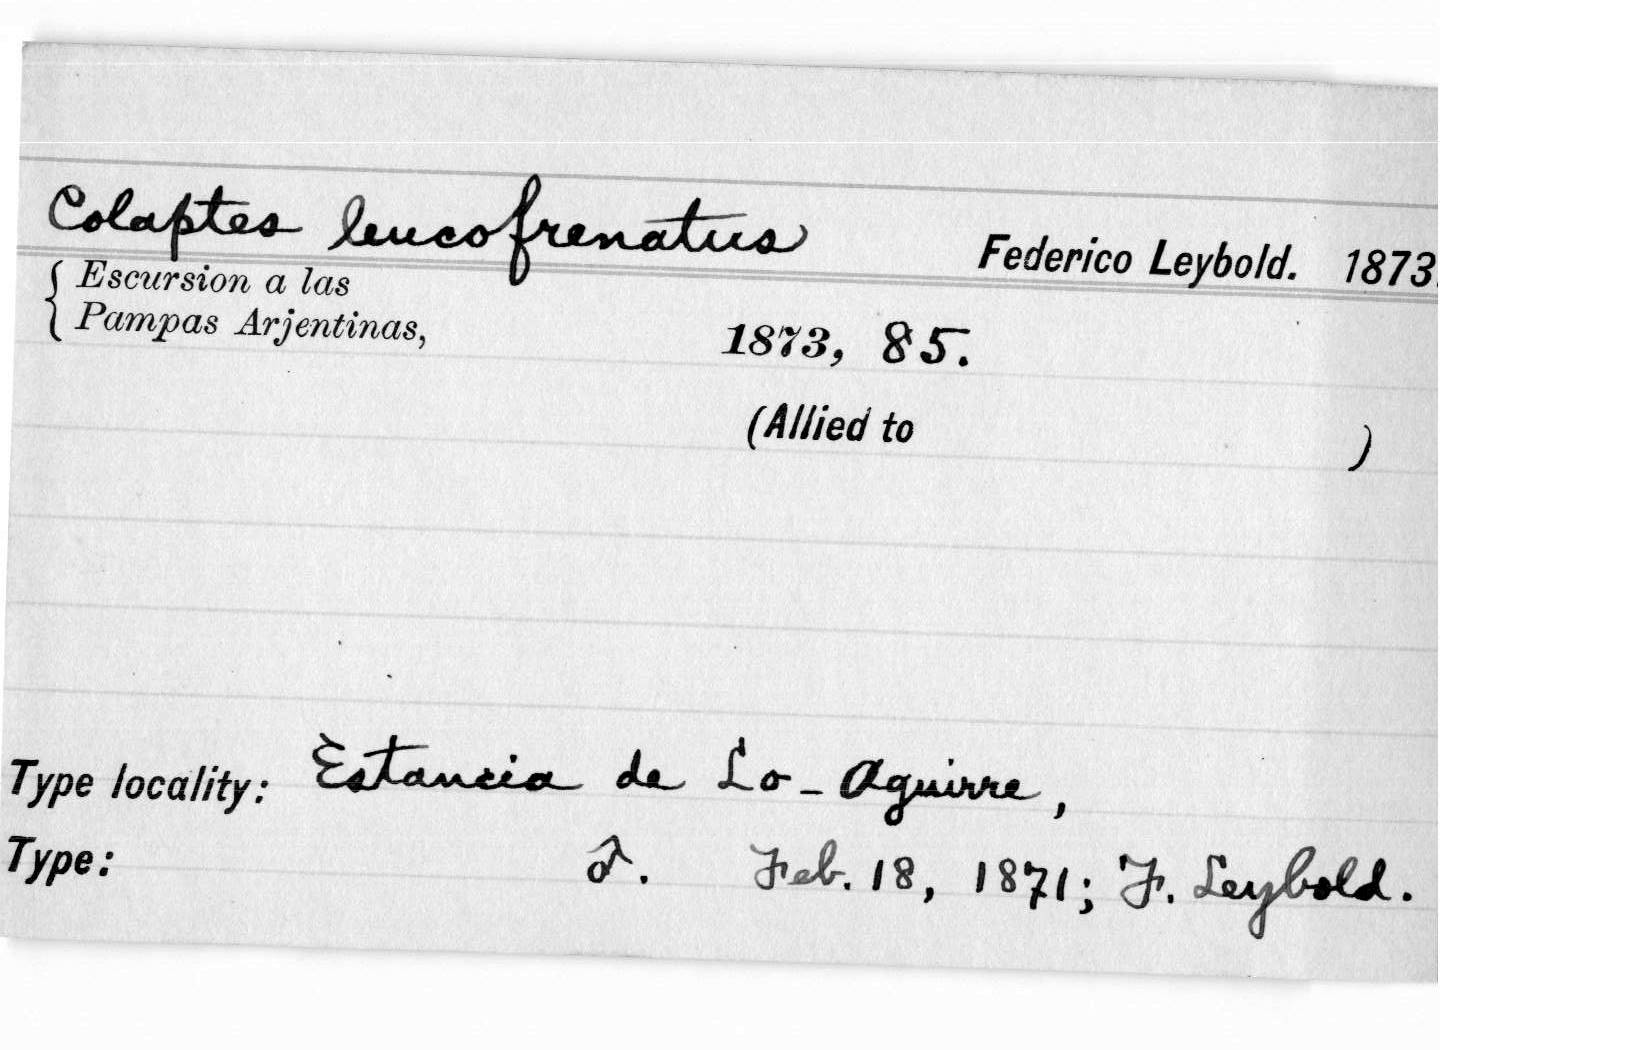 Colaptes leucofrenatus Federico Leybold. 1873.
Escursion a las
Pampas Arjentinas, 1873, 85.
(Allied to )
Type locality: Estancia de Lo-Aguirre,
Type: ♂. Feb. 18, 1871; F. Leybold.